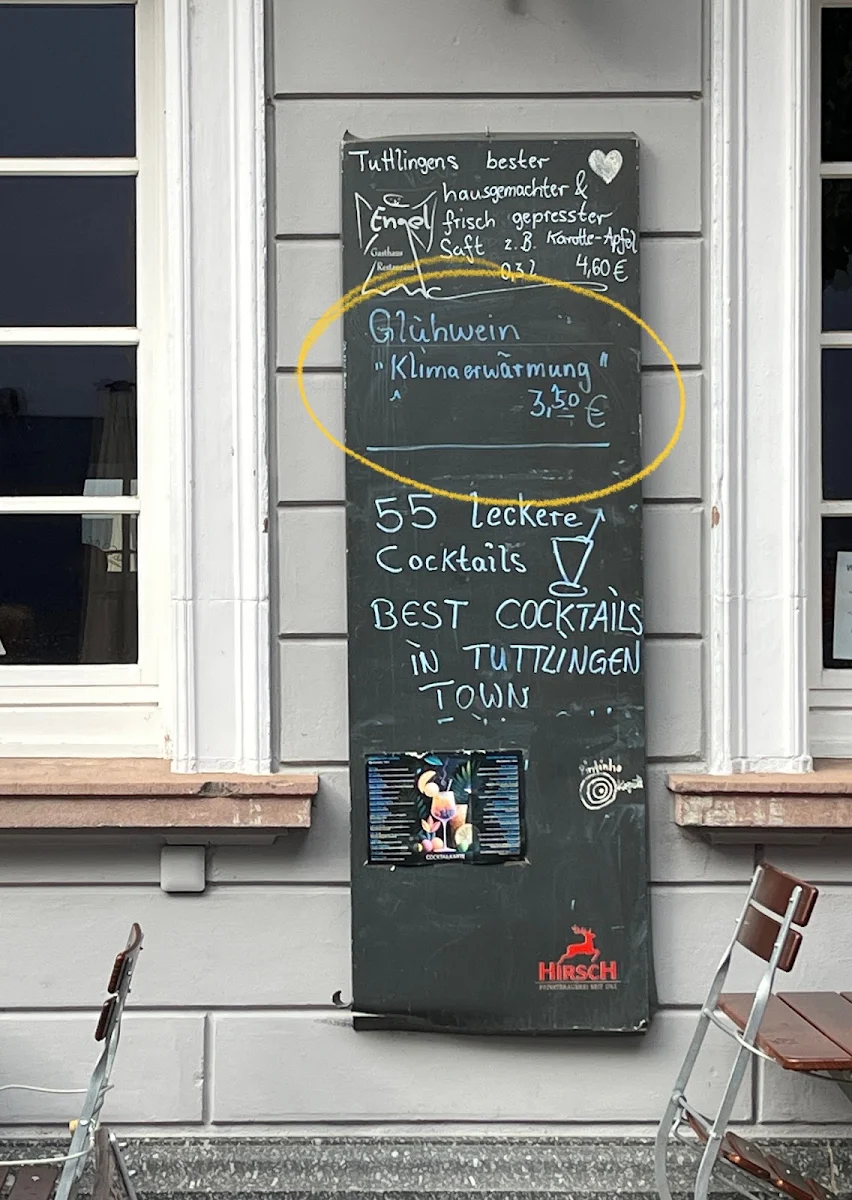 Tuttlingens bester
hausgemachter &
Engel
frisch gepresster
Gasthaus
Saft z.B. Karotte-Apfel
Restaurant
0,3L 4,60€
Glühwein
"Klimaerwärmung"
3,50 €
55 leckere
Cocktails
BEST COCKTAILS
iN TUTTLiNGEN
TOWN
COCKTAILKARTE
HiRSCH